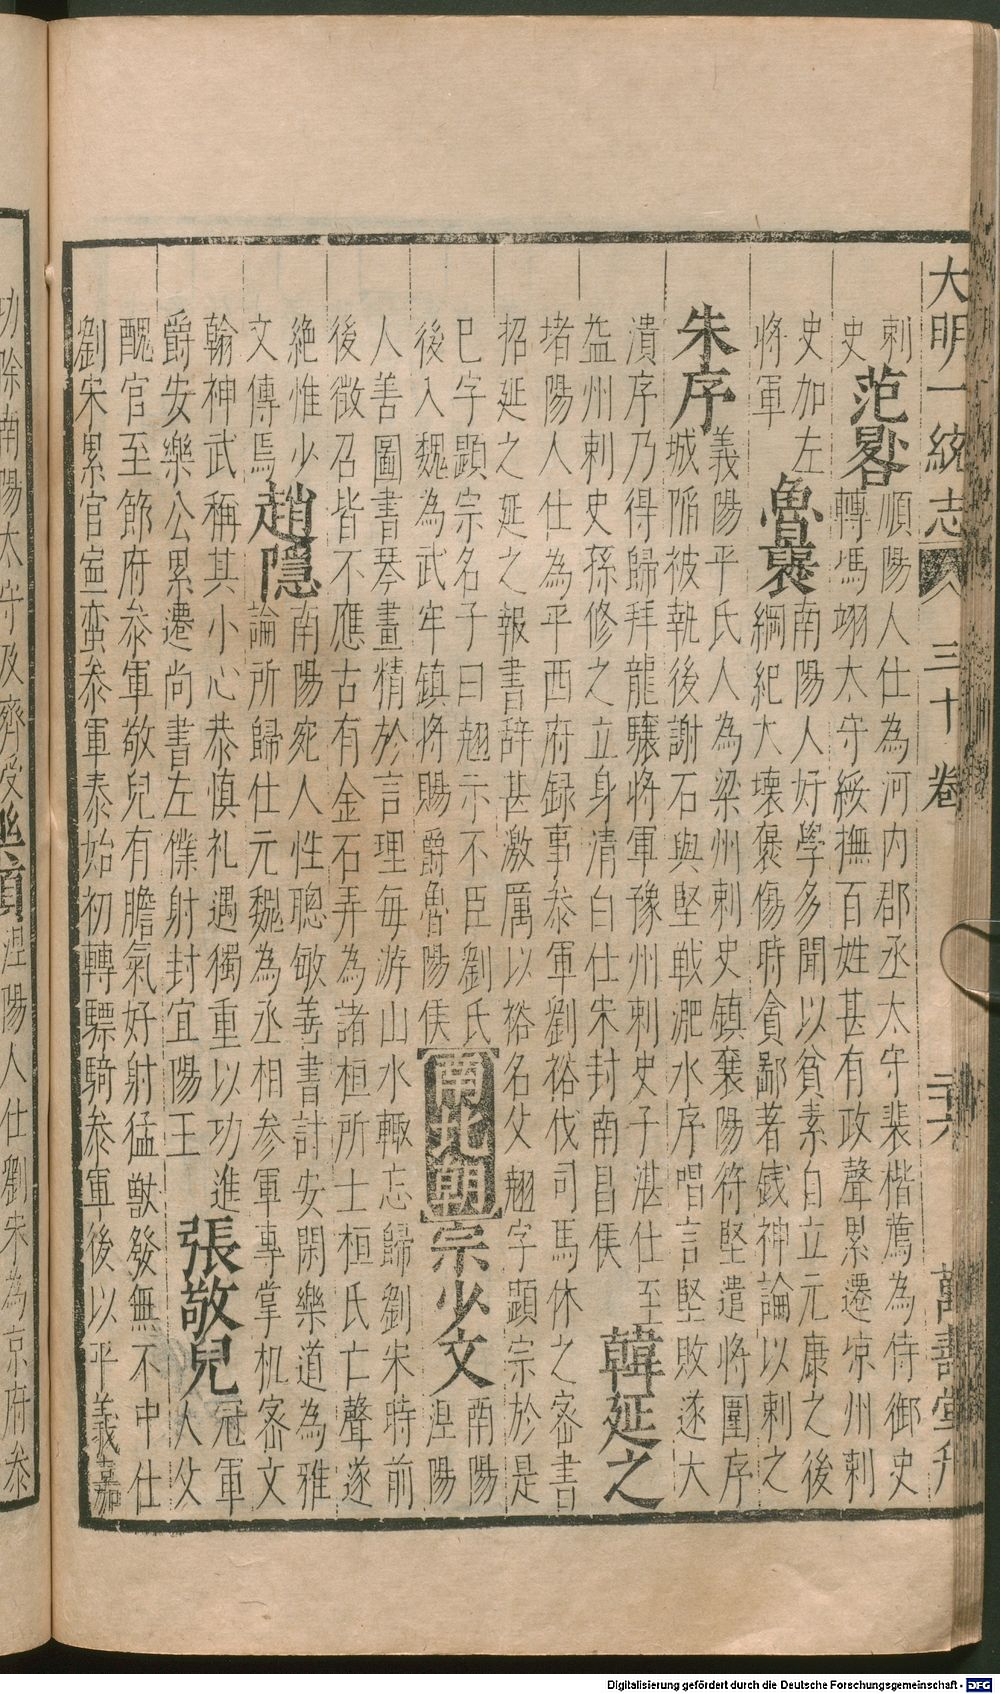 大明一統志 三十卷 萬壽堂刋
刺
史
范晷
順陽人仕為河内郡丞太守裴楷薦為侍御史
轉馮翊太守綏撫百姓甚有政聲累遷凉州刺
史加左
將軍
魯褒
南陽人好學多聞以貧素自立元康之後
綱紀大壞褒傷時貪鄙著錢神論以刺之
朱序
義陽平氏人為梁州刺史鎮襄陽符堅遣將圍序
城陷被執後謝石與堅戰淝水序唱言堅敗遂大
潰序乃得歸拜龍驤將軍豫州刺史子湛仕至
益州刺史孫修之立身清白仕宋封南昌侯
韓延之
堵陽人仕為平西府録事叅軍劉裕伐司馬休之密書
招延之延之報書辞甚激厲以裕名父翹字顯宗於是
巳字顯宗名子曰翹示不臣劉氏
後入魏為武牢鎮將賜爵魯陽侯
南北朝
宗少文
南陽
涅陽
人善圖書琴畫精於言理毎游山水輙忘歸劉宋時前
後徵召皆不應古有金石弄為諸桓所士桓氏亡聲遂
絶惟少
文傳焉
趙隱
南陽宛人性聰敏善書計安閑樂道為雅
論所歸仕元魏為丞相参軍專掌机密文
翰神武稱其小心恭慎礼遇獨重以功進
爵安樂公累遷尚書左僕射封宜陽王
張敬兒
冠軍
人父
醜官至節府叅軍敬兒有膽氣好射猛獸發無不中仕
劉宋累官寧蠻叅軍泰始初轉驃騎叅軍後以平義嘉
功除南陽太守及齊受
涅陽人仕劉宋為京府叅
Digitalisierung gefördert durch die Deutsche Forschungsgemeinschaft - DFG